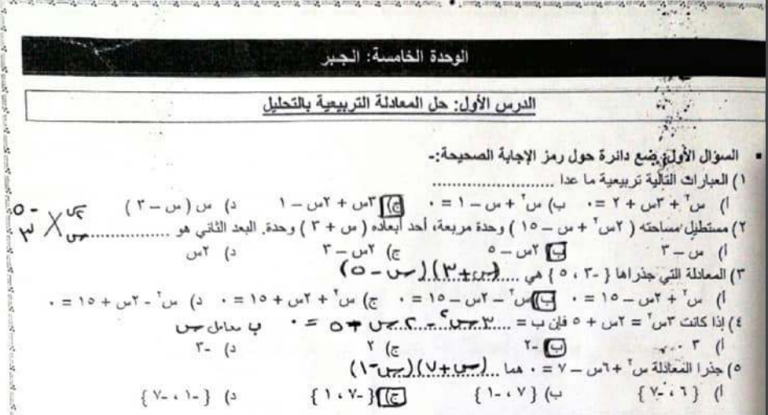 الوحدة الخامسة: الجبر
الدرس الأول: حل المعادلة التربيعية بالتحليل
السؤال الأول: ضع دائرة حول رمز الإجابة الصحيحة:-
١) العبارات التالية تربيعية ما عدا ......................
أ) س² + ٣س + ٢ = ٠ ب) س² + س – ١ = ٠ ج) ٣س + ٢س – ١ د) س ( س – ٣ )
٢) مستطيل مساحته ( ٢س² + س – ١٥ ) وحدة مربعة، أحد أبعاده ( س + ٣ ) وحدة. البعد الثاني هو ......................
٢س س -٥ ٣
أ) س – ٣ ب) ٢س – ٥ ج) ٢س – ٣ د) ٢س
٣) المعادلة التي جذراها { -٣ ، ٥ } هي ...... (س+٣)(س-٥)
أ) س² + ٢س – ١٥ = ٠ ب) س² – ٢س – ١٥ = ٠ ج) س² + ٢س + ١٥ = ٠ د) س² - ٢س + ١٥ = ٠
٤) إذا كانت ٣س² = ٢س + ٥ فإن ب = ...... ٣س² - ٢س + ٥ = ٠ ب معامل س
أ) ٣ ب) -٢ ج) ٢ د) -٣
٥) جذرا المعادلة س² + ٦س – ٧ = ٠ هما ...... (س+٧)(س-١)
أ) { ٦ ، -٧ } ب) { ٧ ، -١ } ج) { -٧ ، ١ } د) { -١ ، -٧ }